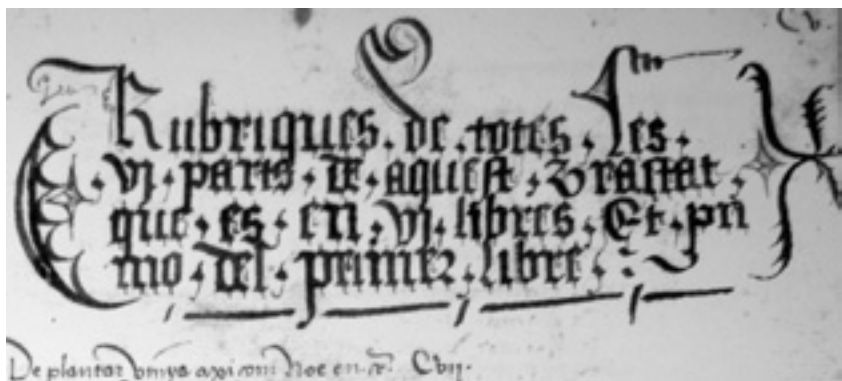 Cv.
Rubriques. de. totes. les.
.vj. parts. de. aquest. Trastat.
que. es. en. vj. libres. Et. pri
mo. del. primer. libre.
De plantar vinya axi com Noe en. Cvij.